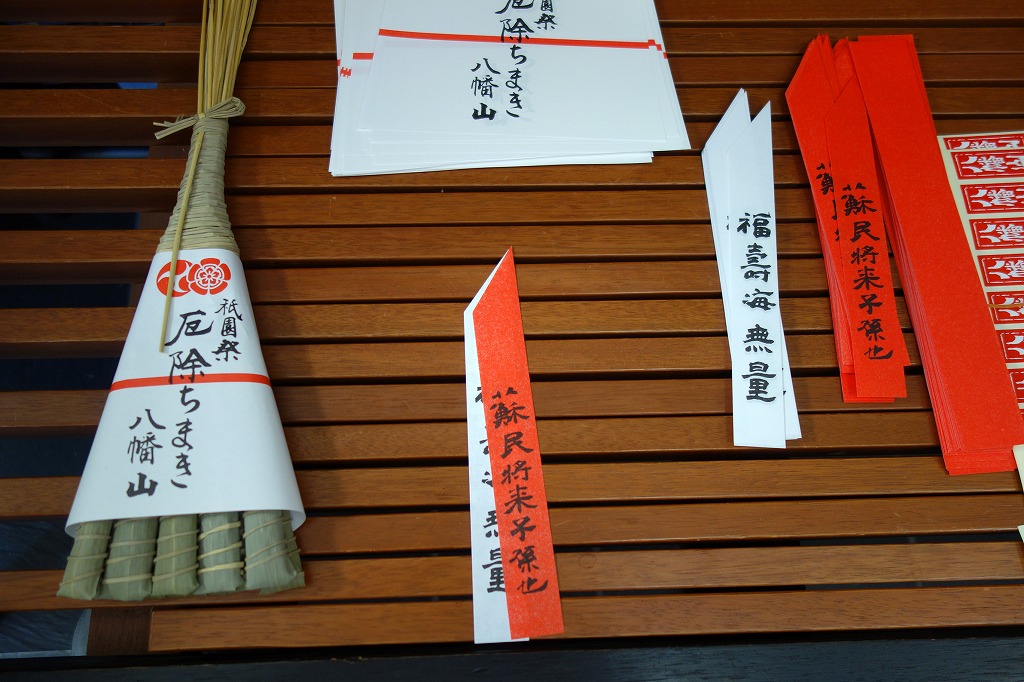 祇園祭
厄除ちまき
八幡山
祭
厄除ちまき
八幡山
蘇民将来子孫也
福壽海無量
蘇民将来子孫也